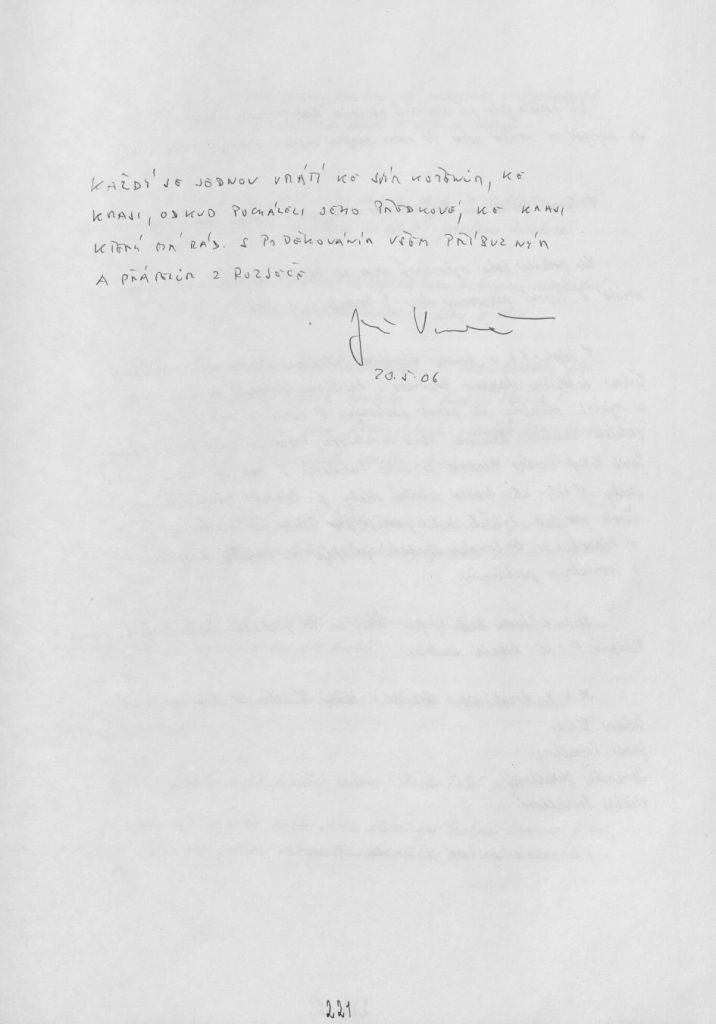 KAŽDÝ SE JEDNOU VRÁTÍ KE SVÝM KOŘENŮM, KE
KRAJI, ODKUD POCHÁZELI JEHO PŘEDKOVÉ, KE KRAJI
KTERÝ MÁ RÁD. S PODĚKOVÁNÍM VŠEM PŘÍBUZNÝM
A PŘÁTELŮM Z ROZSÍČE
Jiří
20.5.06
221